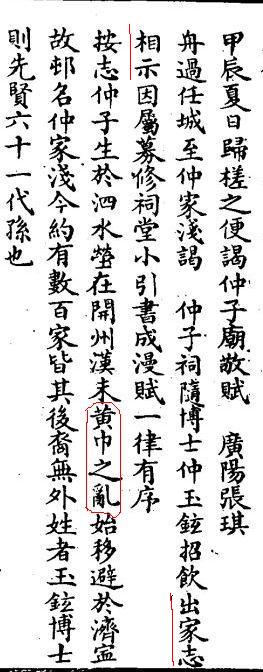 甲辰夏日歸槎之便謁仲子廟敬賦　廣陽張琪
舟過任城至仲家淺謁　仲子祠隨博士仲玉鉉招飲出家志
相示因屬募修祠堂小引書成漫賦一律有序
按志仲子生於泗水塋在開州漢末黃巾之亂始移避於濟寍
故邨名仲家淺今約有數百家皆其後裔無外姓者玉鉉博士
則先賢六十一代孫也